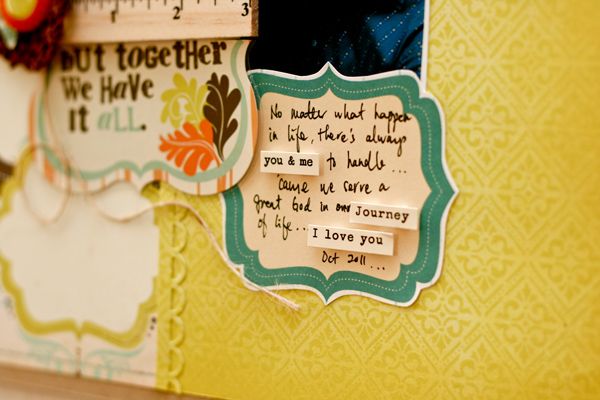 1 2 3
but together
we have
it all.
No matter what happen
in life, there's always
you & me to handle...
'cause we serve a
great God in our Journey
of life...
I love you
Oct 2011...